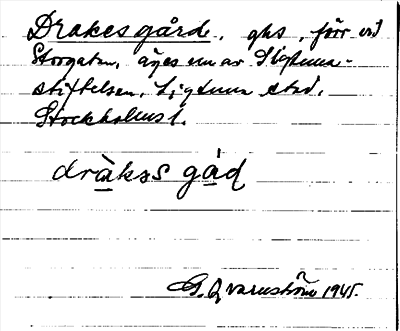 Drakesgårde, ghs, förr vid
Storgatan, äges nu av Sigtuna-
stiftelsen, Sigtuna stad,
Stockholms l.
dràkəs gåd
G. Qvarnström 1945.